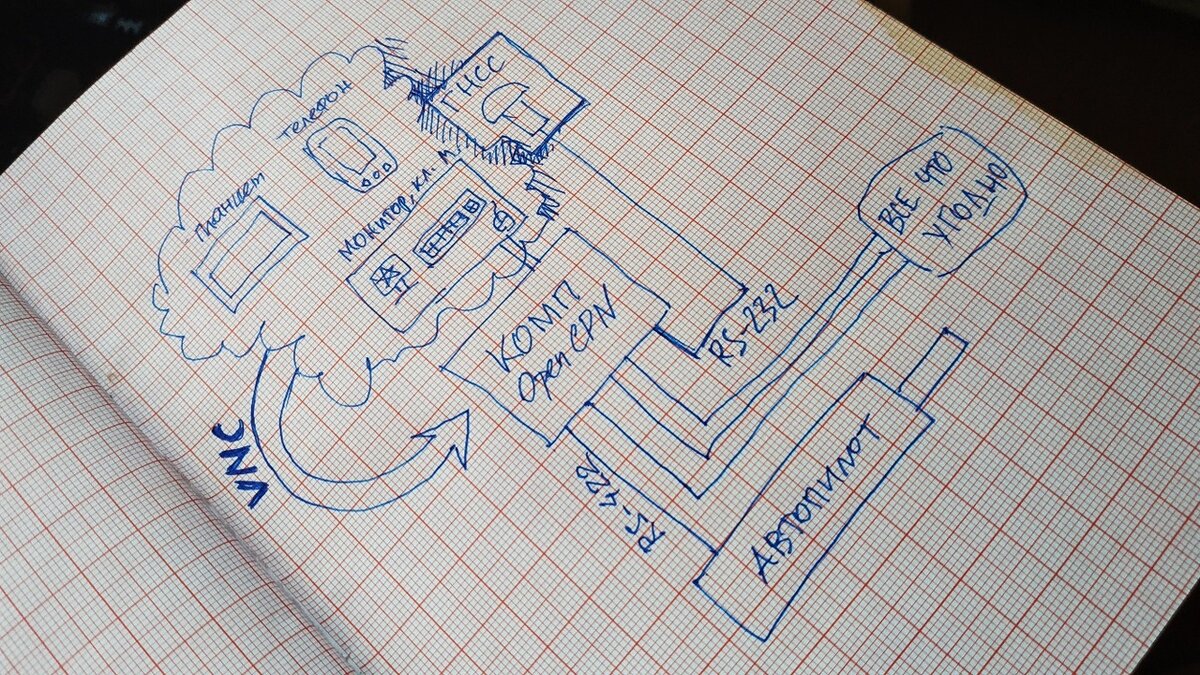 ГНСС
Телефон
Планшет
Монитор, кл. М.
КОМП
Open CPN
ВСЕ ЧТО
УГОДНО
RS-232
VNC
RS-422
АВТОПИЛОТ